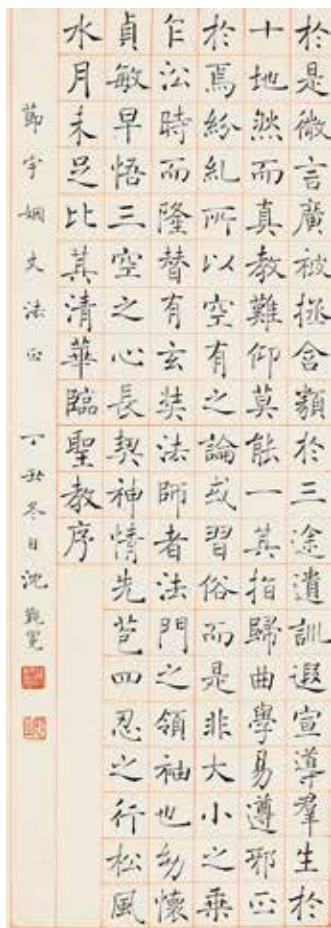 於是微言廣被拯含類於三途遺訓遐宣導羣生於
十地然而真教難仰莫能一其指歸曲學易遵邪正
於焉紛糺所以空有之論或習俗而是非大小之乘
乍沿時而隆替有玄奘法師者法門之領袖也幼懷
貞敏早悟三空之心長契神情先苞四忍之行松風
水月未足比其清華臨聖教序
宇姻丈法正 冬日沈覲冕